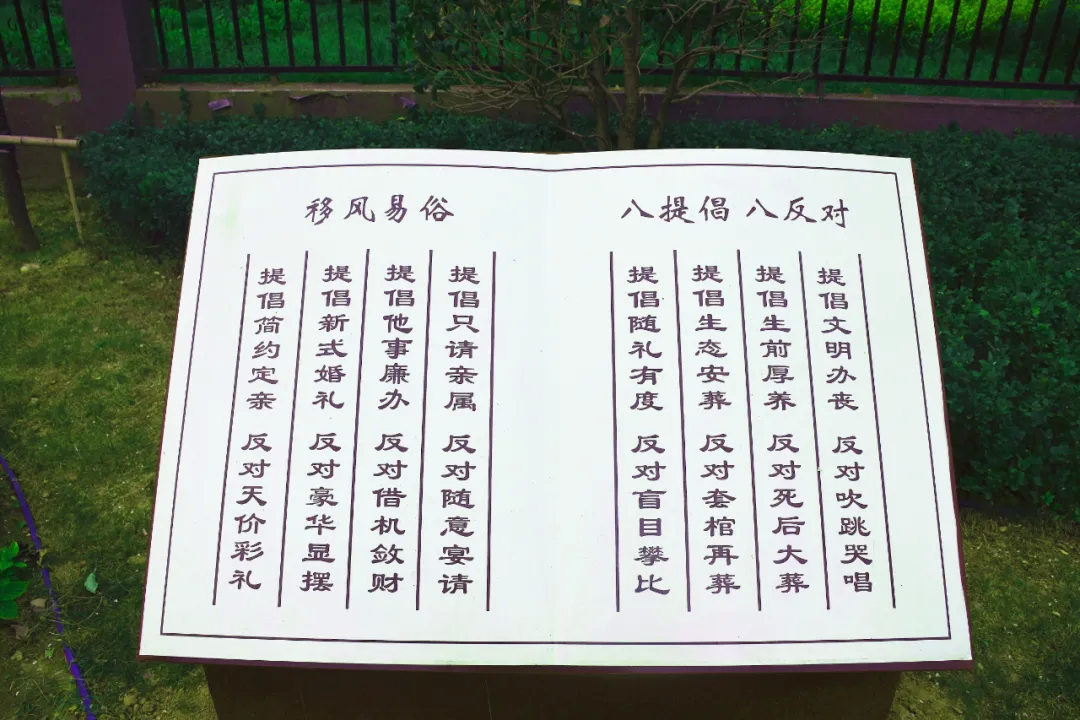 移风易俗
八提倡八反对
提倡简约定亲 反对天价彩礼
提倡新式婚礼 反对豪华显摆
提倡他事廉办 反对借机敛财
提倡只请亲属 反对随意宴请
提倡随礼有度 反对盲目攀比
提倡生态安葬 反对套棺再葬
提倡生前厚养 反对死后大葬
提倡文明办丧 反对吹跳哭唱